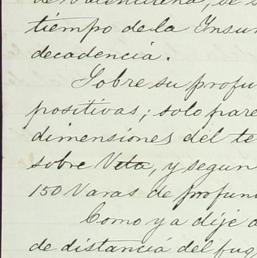 tiempo de la Insur
decadencia.
Sobre su profu
positivas; solo pare
dimensiones del te
sobre Veta, y segun
150 Varas de profun
Como ya dije a
de distancia del fug